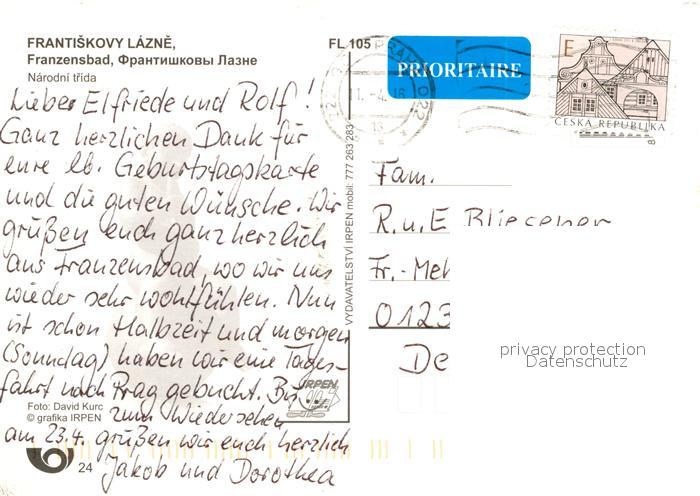 FRANTIŠKOVY LÁZNĚ,
Franzensbad, Франтишковы Лазне
Národní třída
FL 105
PRIORITAIRE
E
ČESKÁ REPUBLIKA
Lieber Elfriede und Rolf!
Ganz herzlichen Dank für
eure lb. Geburtstagskarte
und die guten Wünsche. Wir
grüßen euch ganz herzlich
aus Franzensbad, wo wir uns
wieder sehr wohlfühlen. Nun
ist schon Halbzeit und morgen
(Sonntag) haben wir eine Tages-
fahrt nach Prag gebucht. Bis
zum Wiedersehen
am 23.4. grüßen wir euch herzlich
Jakob und Dorothea
Foto: David Kurc
© grafika IRPEN
24
IRPEN
VYDAVATELSTVÍ IRPEN mobil: 777 263 283
Fam.
R. u. E
Fr.-Meh
0123
De
privacy protection
Datenschutz